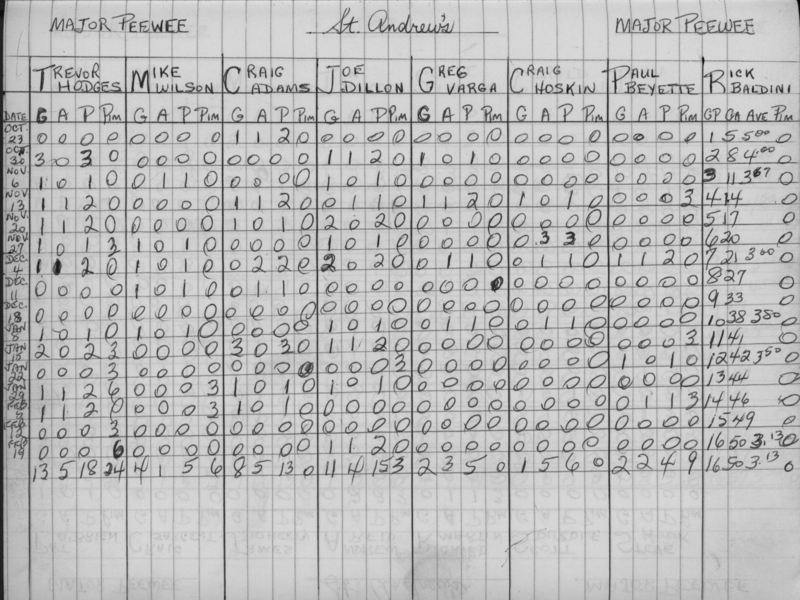 MAJOR PEEWEE St. Andrew's MAJOR PEEWEE
TREVOR HODGES MIKE WILSON CRAIG ADAMS JOE DILLON GREG VARGA CRAIG HOSKIN PAUL BEYETTE RICK BALDINI
DATE G A P Pim G A P Pim G A P Pim G A P Pim G A P Pim G A P Pim G A P Pim GP GA AVE Pim
OCT 23 0 0 0 0 0 0 0 0 1 1 2 0 0 0 0 0 0 0 0 0 0 0 0 0 0 0 0 0 1 5 5.00 0
OCT 30 3 0 3 0 0 0 0 0 0 0 0 0 1 1 2 0 1 0 1 0 0 0 0 0 0 0 0 0 2 8 4.00 0
NOV 6 1 0 1 0 0 1 1 0 0 0 0 0 1 0 1 0 0 0 0 0 0 0 0 0 0 0 0 0 3 11 3.67 0
NOV 13 1 1 2 0 0 0 0 0 1 1 2 0 0 1 1 0 1 1 2 0 1 0 1 0 0 0 0 3 4 14 0
NOV 20 1 1 2 0 0 0 0 0 1 0 1 0 2 0 2 0 0 0 0 0 0 0 0 0 0 0 0 0 5 17 0
NOV 27 1 0 1 3 1 0 1 0 0 0 0 0 1 0 1 0 0 0 0 0 0 3 3 0 0 0 0 0 6 20 0
DEC 4 1 1 2 0 1 0 1 0 0 2 2 0 2 0 2 0 0 1 1 0 0 1 1 0 1 1 2 0 7 21 3.00 0
DEC 11 0 0 0 0 1 0 1 0 0 1 1 0 0 0 0 0 0 0 0 0 0 0 0 0 0 0 0 0 8 27 0
DEC 18 0 0 0 0 0 0 0 0 0 0 0 0 0 0 0 0 0 0 0 0 0 0 0 0 0 0 0 0 9 33 0
JAN 8 1 0 1 0 1 0 1 0 0 0 0 0 1 0 1 0 0 1 1 0 0 1 1 0 0 0 0 0 10 38 3.80 0
JAN 15 2 0 2 3 0 0 0 0 3 0 3 0 1 1 2 0 0 0 0 0 0 0 0 0 0 0 0 3 11 41 0
JAN 22 0 0 0 3 0 0 0 0 0 0 0 0 0 0 0 3 0 0 0 0 0 0 0 0 1 0 1 0 12 42 3.50 0
JAN 29 1 1 2 6 0 0 0 3 1 0 1 0 1 0 1 0 0 0 0 0 0 0 0 0 0 0 0 0 13 44 0
FEB 1 1 2 0 0 0 0 3 1 0 1 0 0 0 0 0 0 0 0 0 0 0 0 0 0 1 1 3 14 46 0
FEB 0 0 0 3 0 0 0 0 0 0 0 0 0 0 0 0 0 0 0 0 0 0 0 0 0 0 0 0 15 49 0
FEB 19 0 0 0 6 0 0 0 0 0 0 0 0 1 1 2 0 0 0 0 0 0 0 0 0 0 0 0 0 16 50 3.13 0
13 5 18 24 4 1 5 6 8 5 13 0 11 4 15 3 2 3 5 0 1 5 6 0 2 2 4 9 16 50 3.13 0